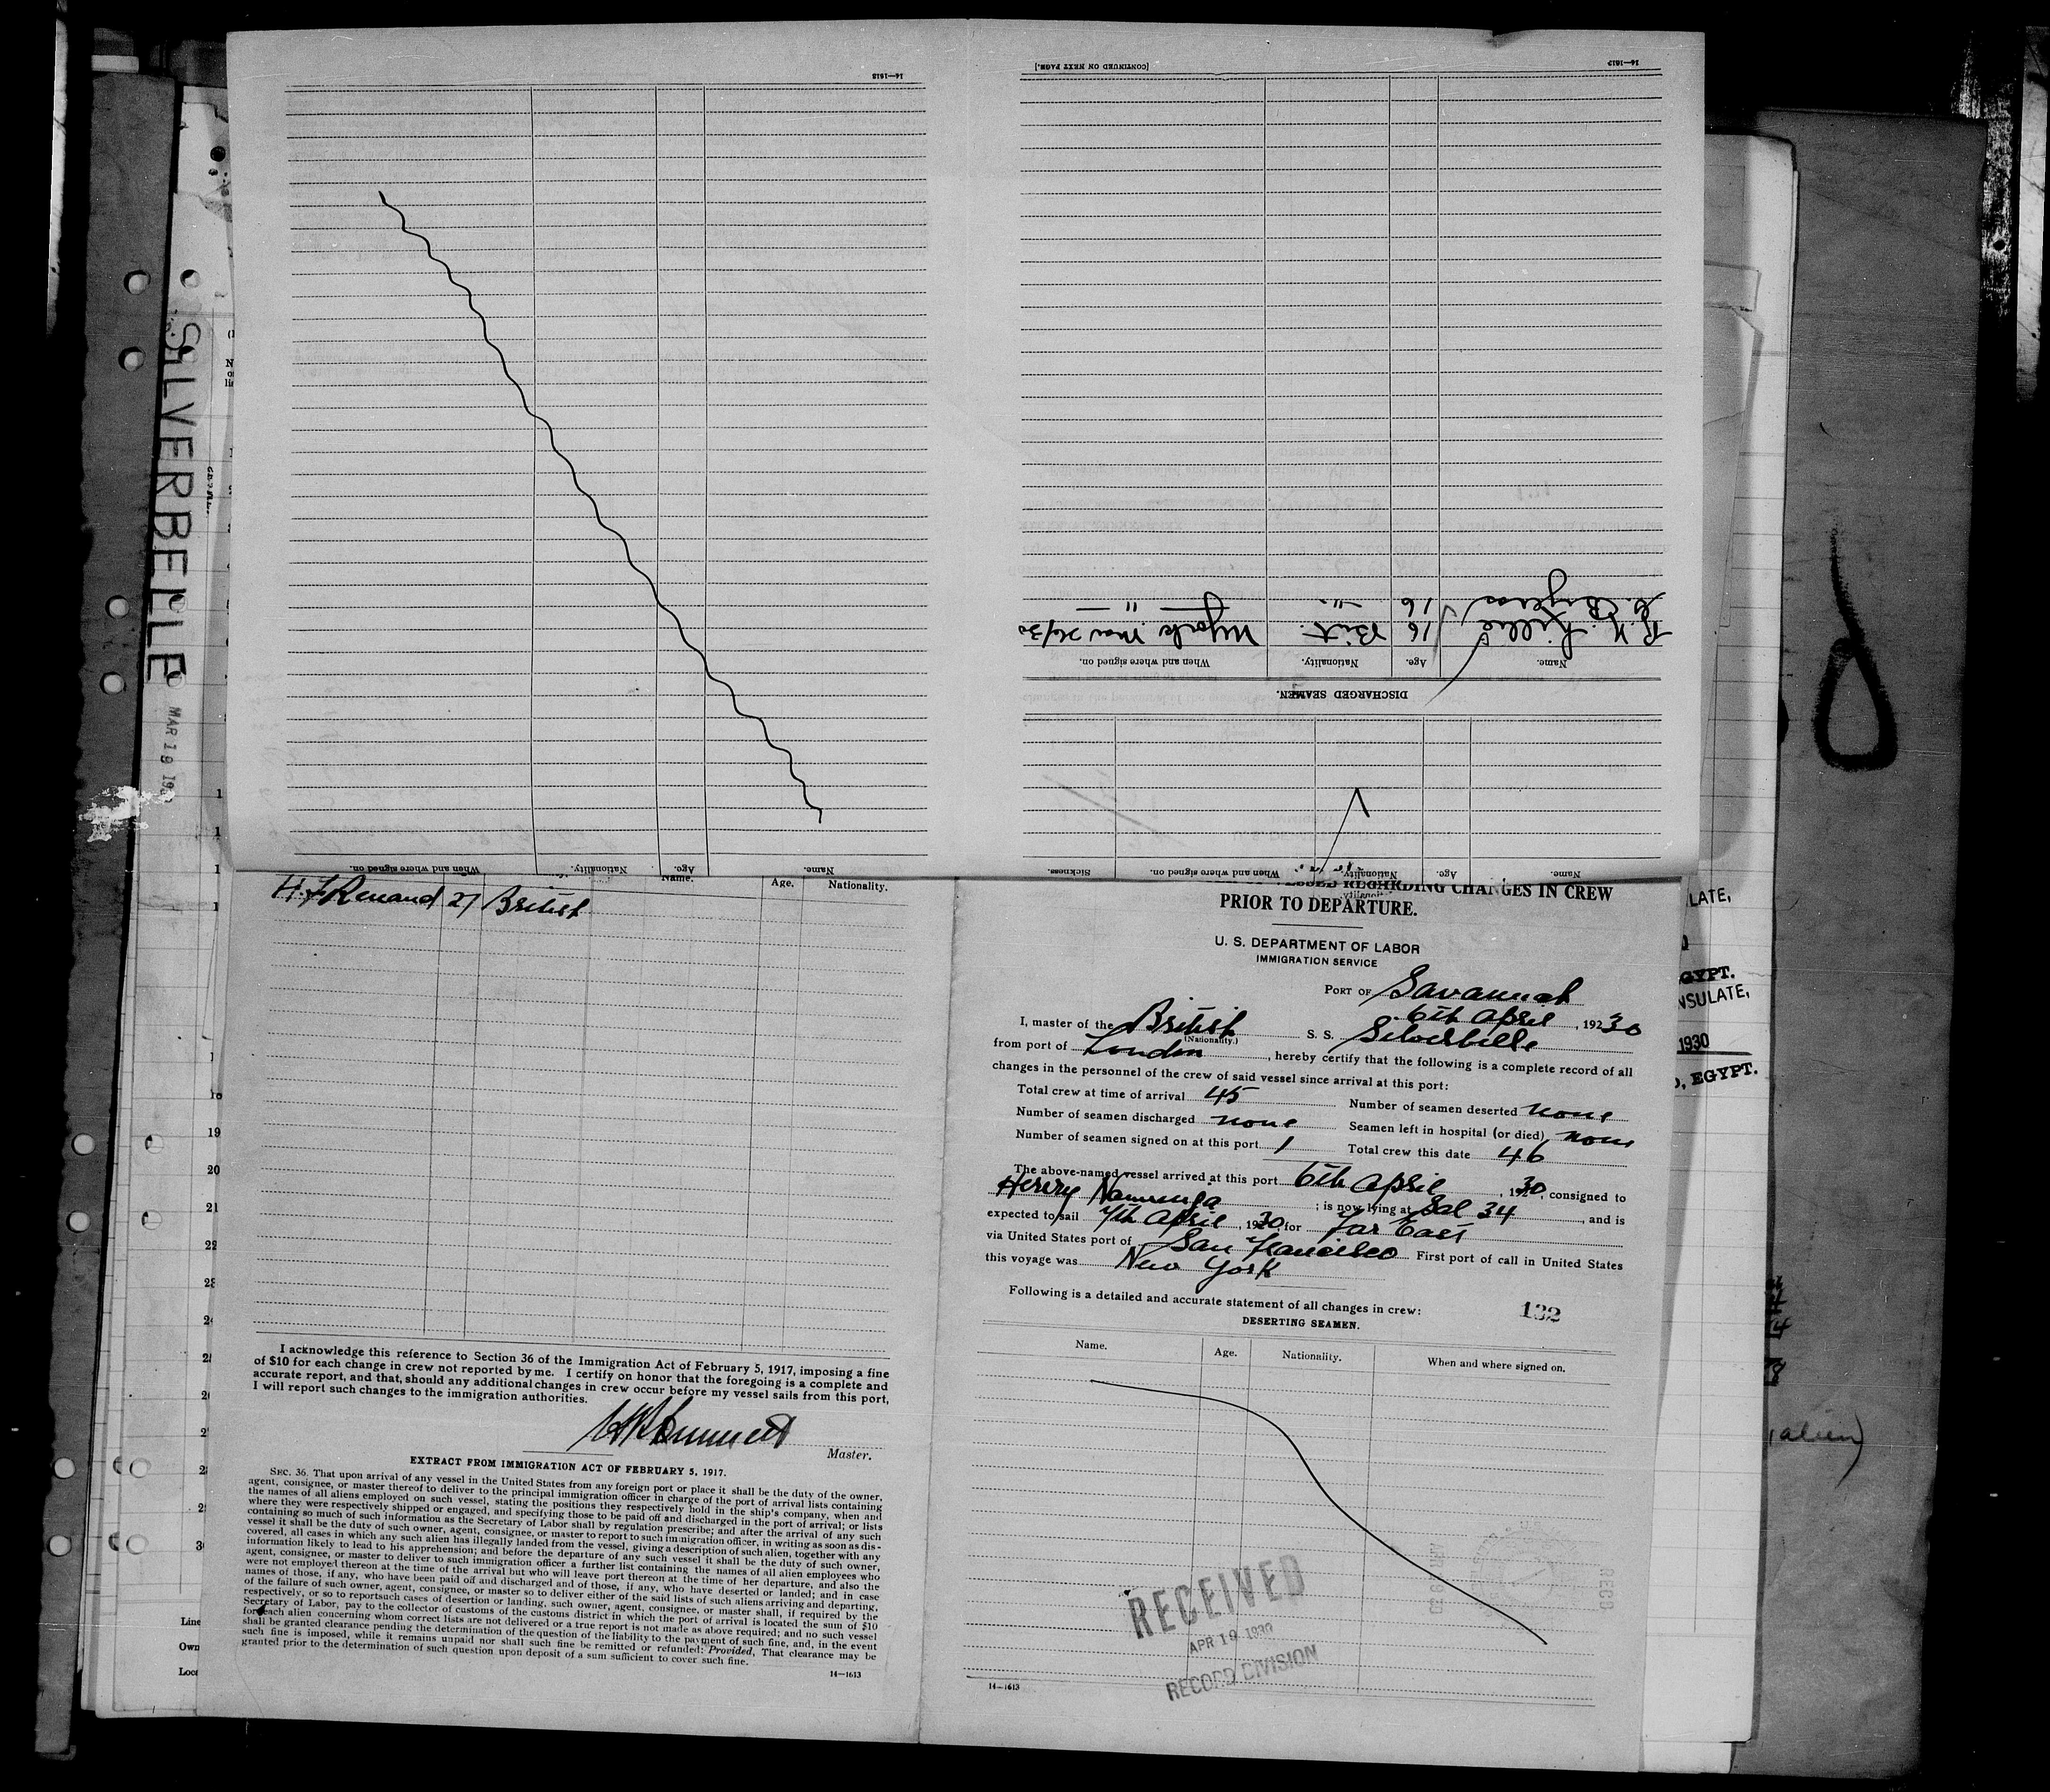 [CONTINUED ON NEXT PAGE.]
14—1613
14—1613
Name. Age. Nationality. When and where signed on.
Name. Age. Nationality. When and where signed on. Sickness.
DISCHARGED SEAMEN.
Name. Age. Nationality. When and where signed on.
16 Brit. NYork Mar 26/30
16 — " — — " —
SILVERBELLE
MAR 18
Name. Age. Nationality.
H. F. Renaud 27 British
I acknowledge this reference to Section 36 of the Immigration Act of February 5, 1917, imposing a fine
of $10 for each change in crew not reported by me. I certify on honor that the foregoing is a complete and
accurate report, and that, should any additional changes in crew occur before my vessel sails from this port,
I will report such changes to the immigration authorities.
Master.
EXTRACT FROM IMMIGRATION ACT OF FEBRUARY 5, 1917.
SEC. 36. That upon arrival of any vessel in the United States from any foreign port or place it shall be the duty of the owner,
agent, consignee, or master thereof to deliver to the principal immigration officer in charge of the port of arrival lists containing
the names of all aliens employed on such vessel, stating the positions they respectively hold in the ship's company, when and
where they were respectively shipped or engaged, and specifying those to be paid off and discharged in the port of arrival; or lists
containing so much of such information as the Secretary of Labor shall by regulation prescribe; and after the arrival of any such
vessel it shall be the duty of such owner, agent, consignee, or master to report to such immigration officer, in writing as soon as dis-
covered, all cases in which any such alien has illegally landed from the vessel, giving a description of such alien, together with any
information likely to lead to his apprehension; and before the departure of any such vessel it shall be the duty of such owner,
agent, consignee, or master to deliver to such immigration officer a further list containing the names of all alien employees who
were not employed thereon at the time of the arrival but who will leave port thereon at the time of her departure, and also the
names of those, if any, who have been paid off and discharged and of those, if any, who have deserted or landed; and in case
of the failure of such owner, agent, consignee, or master so to deliver either of the said lists of such aliens arriving and departing,
respectively, or so to report such cases of desertion or landing, such owner, agent, consignee, or master shall, if required by the
Secretary of Labor, pay to the collector of customs of the customs district in which the port of arrival is located the sum of $10
for each alien concerning whom correct lists are not delivered or a true report is not made as above required; and no such vessel
shall be granted clearance pending the determination of the question of the liability to the payment of such fine, and, in the event
such fine is imposed, while it remains unpaid nor shall such fine be remitted or refunded: Provided, That clearance may be
granted prior to the determination of such question upon deposit of a sum sufficient to cover such fine.
14—1613
REGARDING CHANGES IN CREW
PRIOR TO DEPARTURE.
U. S. DEPARTMENT OF LABOR
IMMIGRATION SERVICE
PORT OF Savannah
6th April, 19230
I, master of the British S. S. Silverbelle
(Nationality.)
from port of London, hereby certify that the following is a complete record of all
changes in the personnel of the crew of said vessel since arrival at this port:
Total crew at time of arrival 45 Number of seamen deserted none
Number of seamen discharged none Seamen left in hospital (or died) none
Number of seamen signed on at this port 1 Total crew this date 46
The above-named vessel arrived at this port 6th April, 1930, consigned to
Henry ; is now lying at Sal 34, and is
expected to sail 7th April, 1930, for Far East
via United States port of San Francisco First port of call in United States
this voyage was New York
Following is a detailed and accurate statement of all changes in crew:
132
DESERTING SEAMEN.
Name. Age. Nationality. When and where signed on.
RECEIVED
APR 19 1930
RECORD DIVISION
14—1613
LATE,
EGYPT.
NSULATE,
1930
, EGYPT.
alien)
19
20
21
22
Line
Own